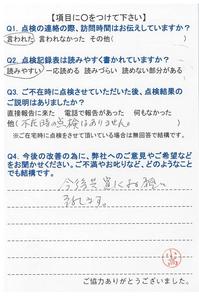 【項目に○をつけて下さい】
Q1. 点検の連絡の際、訪問時間はお伝えしていますか?
言われた 言われなかった その他( )
Q2. 点検記録表は読みやすく書かれていますか?
読みやすい 一応読める 読みづらい 読めない部分がある
Q3. ご不在時に点検させていただいた後、点検結果の
ご説明はありましたか?
直接報告に来た 電話で報告があった 何もなかった
他(不在時の点検はありません。)
※ご在宅時に点検をさせて頂いている場合は無回答で結構です。
Q4. 今後の改善の為に、弊社へのご意見やご希望など
をお聞かせください。ご不満やお叱りなど、どのようなこと
でも結構です。
今後共宜しくお願い
致します。
ご協力ありがとうございました。